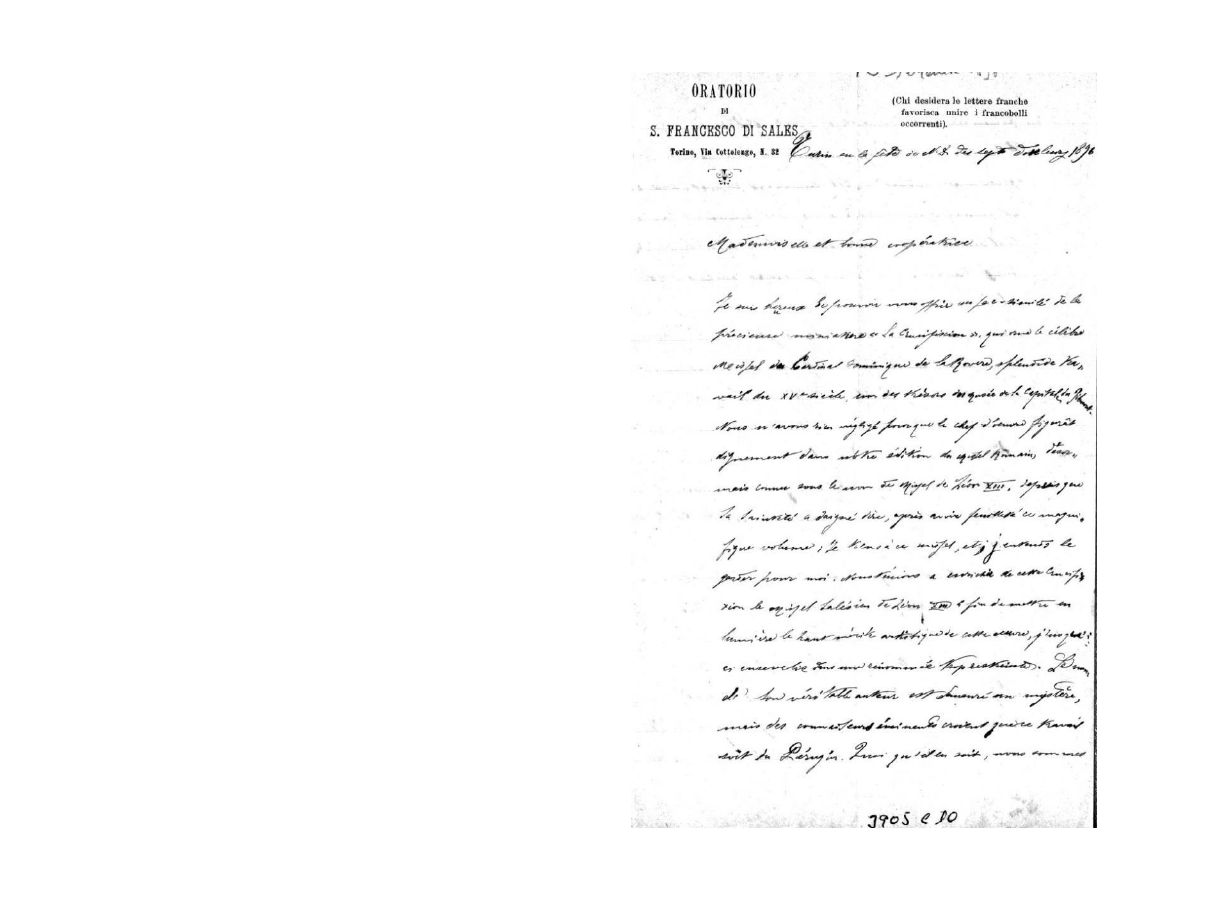 ORATORIO
DI
S. FRANCESCO DI SALES
Torino, Via Cottolengo, N. 32
(Chi desidera le lettere franche
favorisca unire i francobolli
occorrenti).
Turin en la fête de N. D. des sept douleurs 1896
Mademoiselle et bonne coopératrice
Je suis heureux de pouvoir vous offrir un fac-similé de la
précieuse miniature « La Crucifixion », qui orne le célèbre
Missel du Cardinal Dominique de la Rovere, splendide tra-
vail du XVe siècle, un des trésors du musée de la Capitale du Piémont.
Nous n'avons rien négligé pour que le chef d'œuvre figurât
dignement dans notre édition du Missel Romain, désor-
mais connu sous le nom de Missel de Léon XIII, depuis que
Sa Sainteté a daigné dire, après avoir feuilleté ce magni-
fique volume; Je tiens à ce missel, et j'entends le
garder pour moi. Nous tenions a enrichir de cette Crucifi-
xion le Missel Salésien de Léon XIII à fin de mettre en
lumière le haut mérite artistique de cette œuvre, jusqu'i-
ci ensevelie dans une renommée trop restreinte. Le nom
de son véritable auteur est demeuré un mystère,
mais des connaisseurs éminents croient que ce travail
soit du Pérugin. Quoi qu'il en soit, nous sommes
3905 C 10